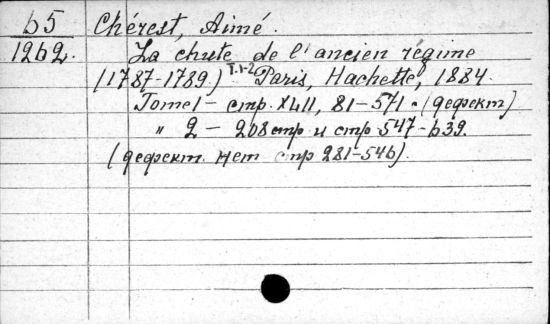 65 Chérest, Aimé.
1262. La chute de l'ancien régime
(1787-1789.) T.1-2 Paris, Hachette, 1884.
Tome 1 - стр. XLII, 81-571. (дефект)
" 2 - 208 стр и стр 547-639.
(дефект. нет стр 281-546).